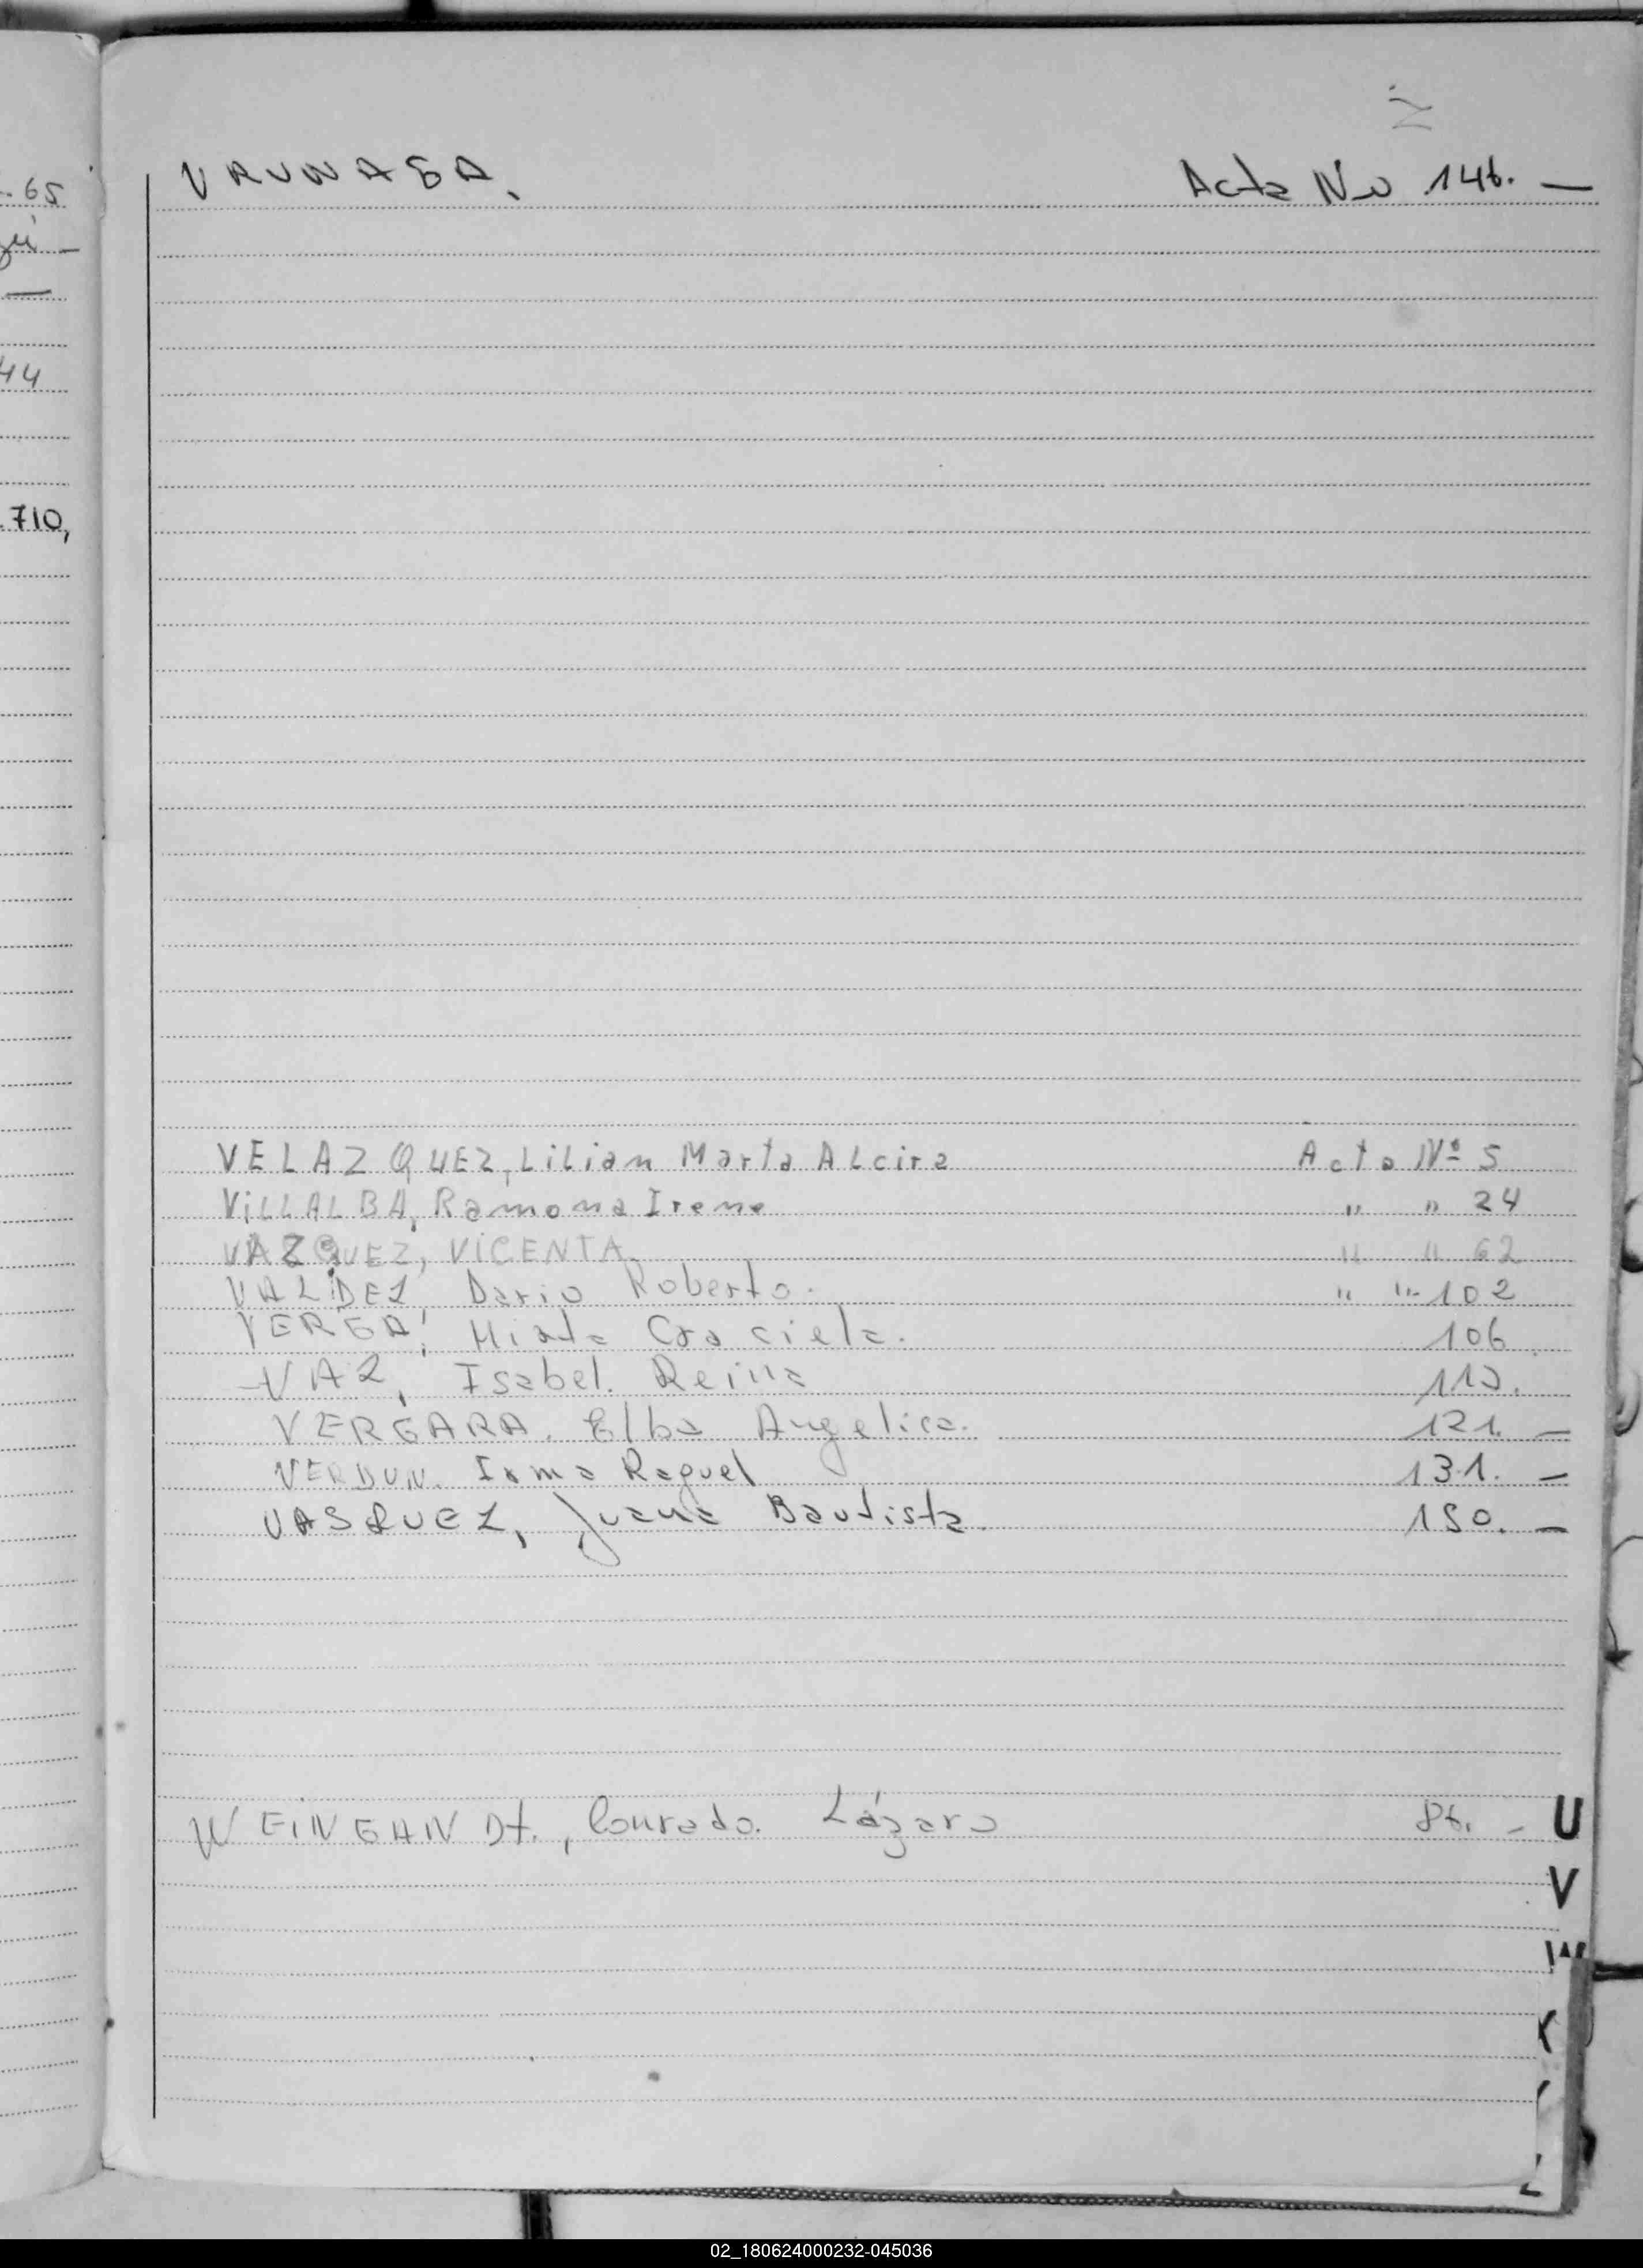 Acta No 146. —
VELAZQUEZ, Lilian Marta Alcira Acta Nº 5
VILLALBA, Ramona Irene " " 24
VAZQUEZ, VICENTA " " 62
VALDEZ, Dario Roberto. " " 102
VERGA, Graciela. 106
VAZ, Isabel.
VERGARA, Elba Angelica. 121. —
VERDUN. Irma Raquel 131. —
VASQUEZ, Juana Bautista. 150. —
WEINGANDt., Conrado. Lázaro 86. —
U
V
W
.65
44
.710,
02_180624000232-045036